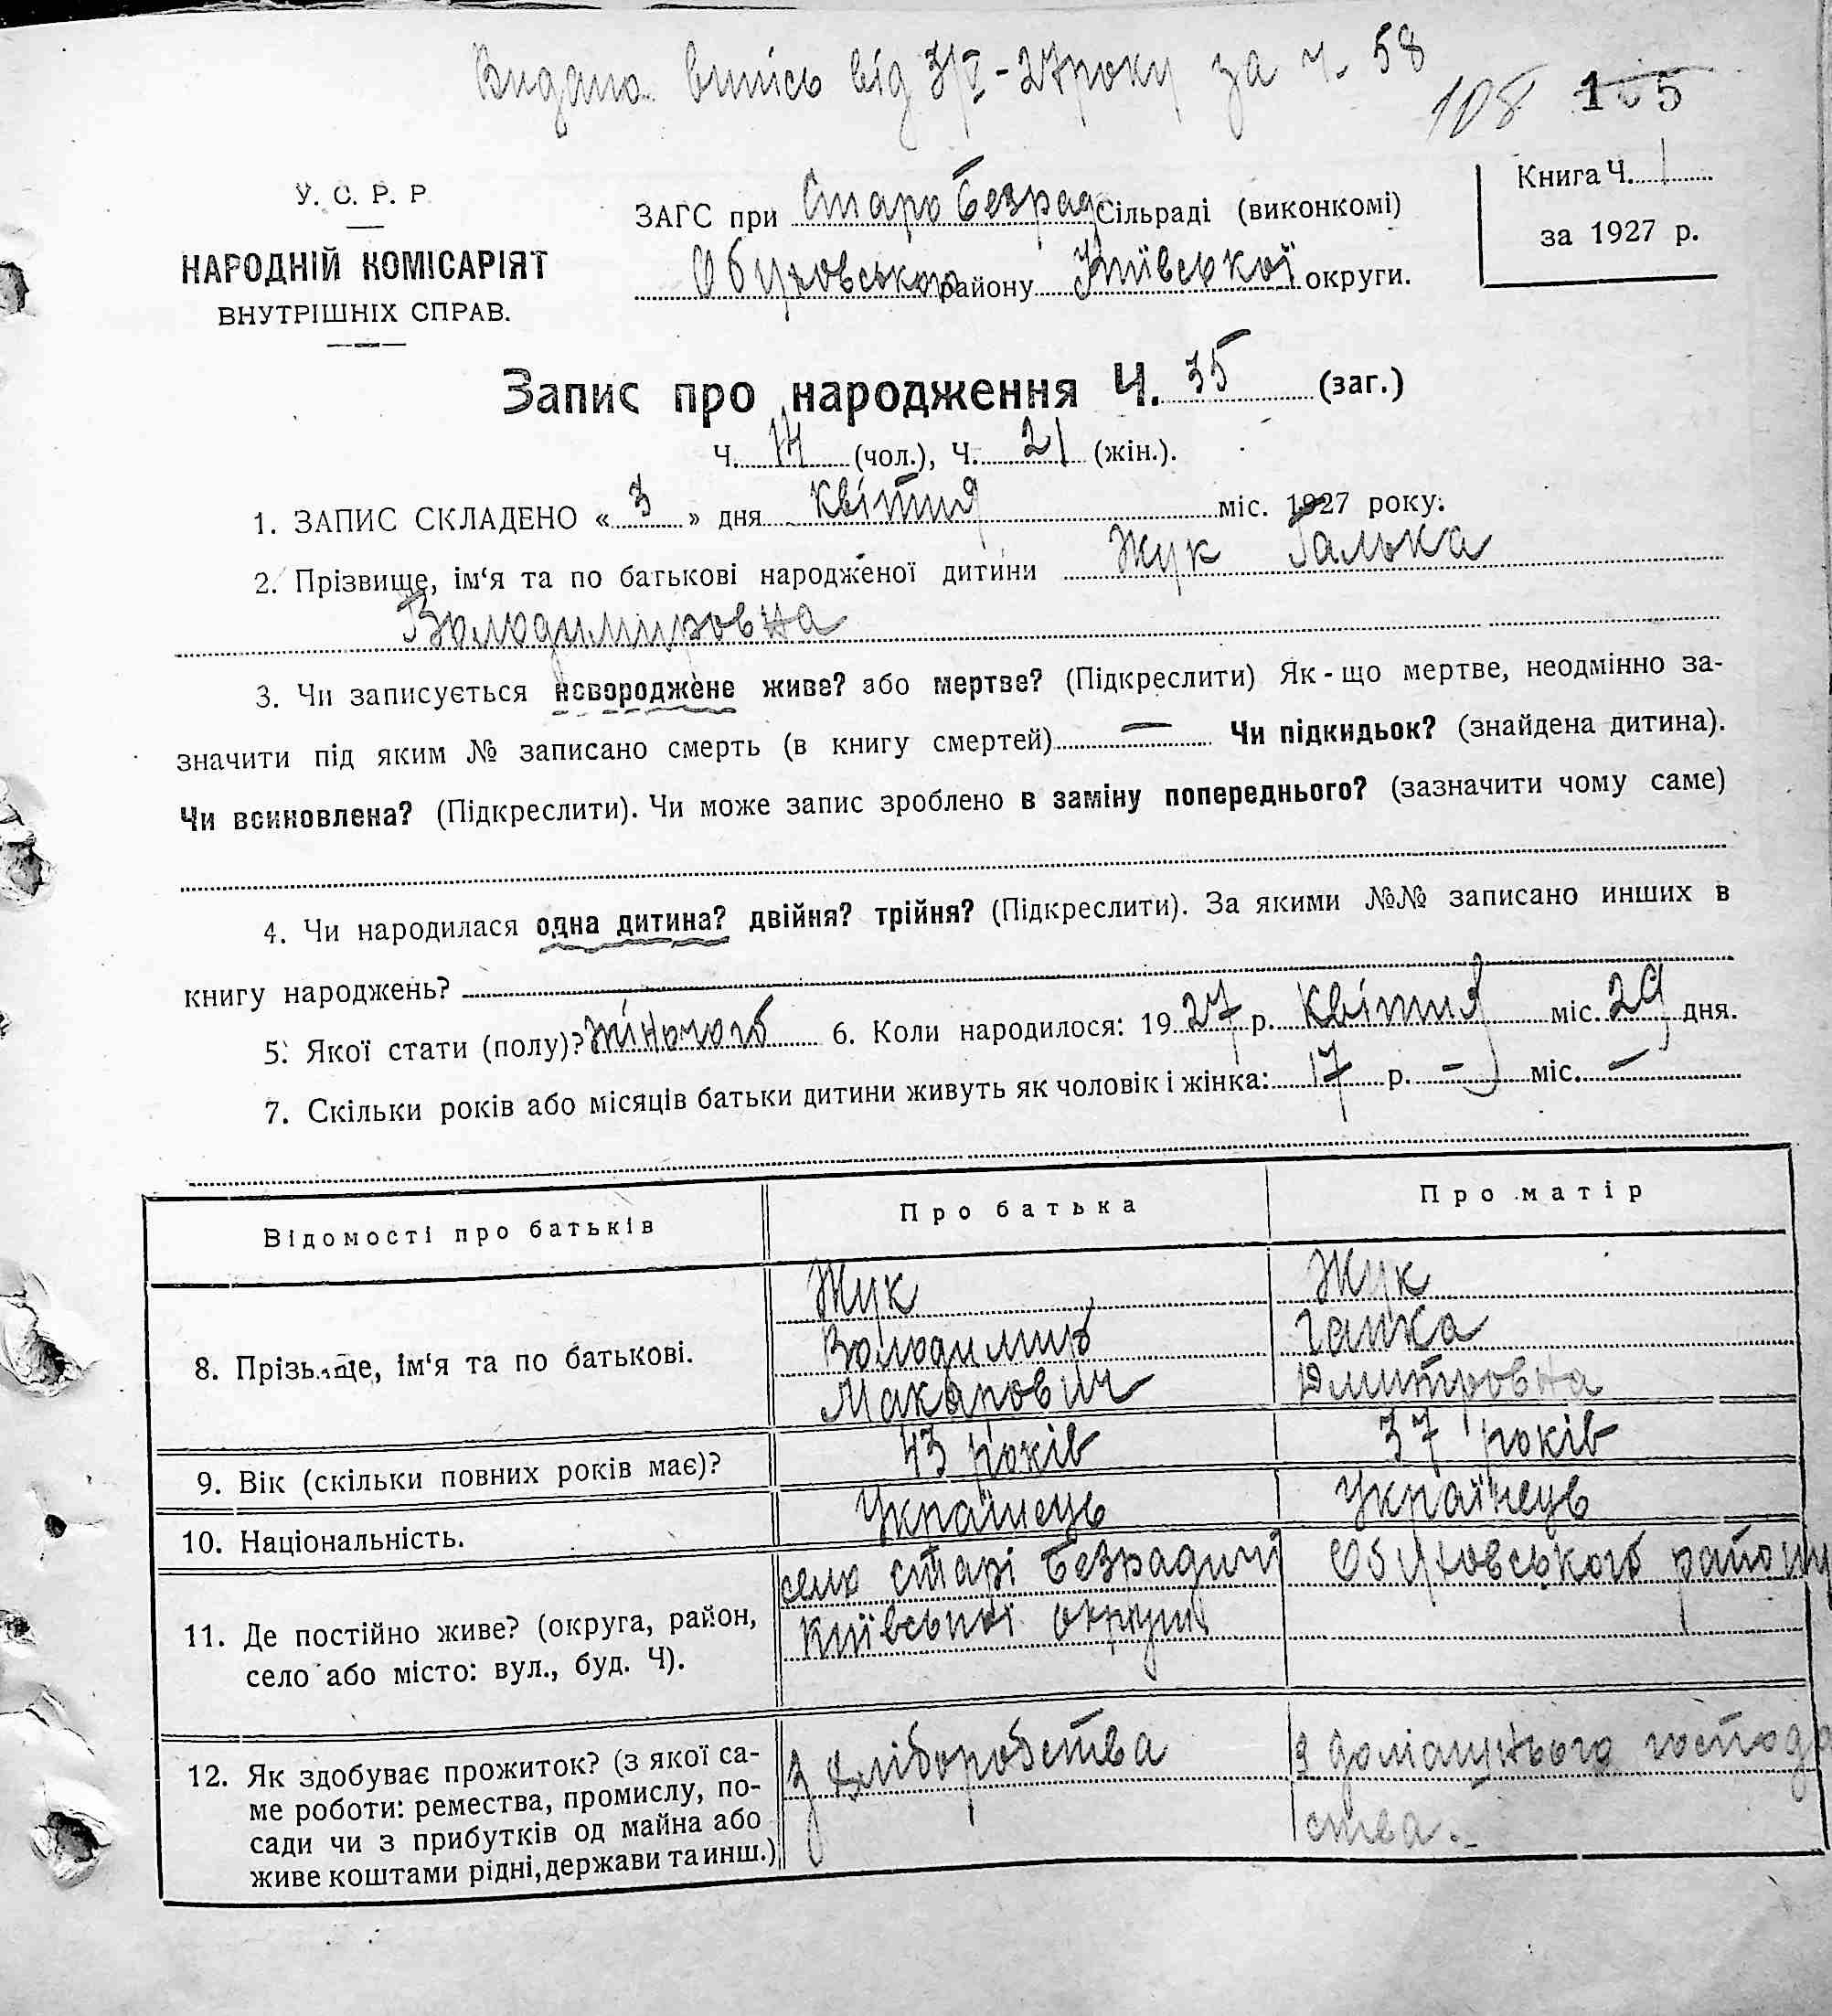 Видано випісь від 3/V-27 року за ч. 58
108 105
У. С. Р. Р.
НАРОДНІЙ КОМІСАРІЯТ
ВНУТРІШНІХ СПРАВ.
ЗАГС при Старо Безрад Сільраді (виконкомі)
Обуховського району Київської округи.
Книга Ч. 1
за 1927 р.
Запис про народження Ч. 35 (заг.)
Ч. 14 (чол.), Ч. 21 (жін.).
1. ЗАПИС СКЛАДЕНО « 3 » дня квітня міс. 1927 року.
2. Прізвище, ім‘я та по батькові народженої дитини Жук Галька
Володимировна
3. Чи записується новороджене живе? або мертве? (Підкреслити) Як-що мертве, неодмінно за-
значити під яким № записано смерть (в книгу смертей) — Чи підкидьок? (знайдена дитина).
Чи всиновлена? (Підкреслити). Чи може запис зроблено в заміну попереднього? (зазначити чому саме)
4. Чи народилася одна дитина? двійня? трійня? (Підкреслити). За якими №№ записано инших в
книгу народжень?
5. Якої стати (полу)? жіночого 6. Коли народилося: 1927 р. квітня міс. 29 дня.
7. Скільки років або місяців батьки дитини живуть як чоловік і жінка: 17 р. — міс. —
Відомості про батьків Про батька Про матір
8. Прізвище, ім‘я та по батькові.
Жук
Володимир
Макарович
Жук
Ганка
Дмитровна
9. Вік (скільки повних років має)? 43 років 37 років
10. Національність. Українець Українець
11. Де постійно живе? (округа, район,
село або місто: вул., буд. Ч).
село старі Безрадичі Обуховського району
Київської округи
12. Як здобуває прожиток? (з якої са-
ме роботи: ремества, промислу, по-
сади чи з прибутків од майна або
живе коштами рідні, держави та инш.)
З хліборобства
З домашнього господа
ства.